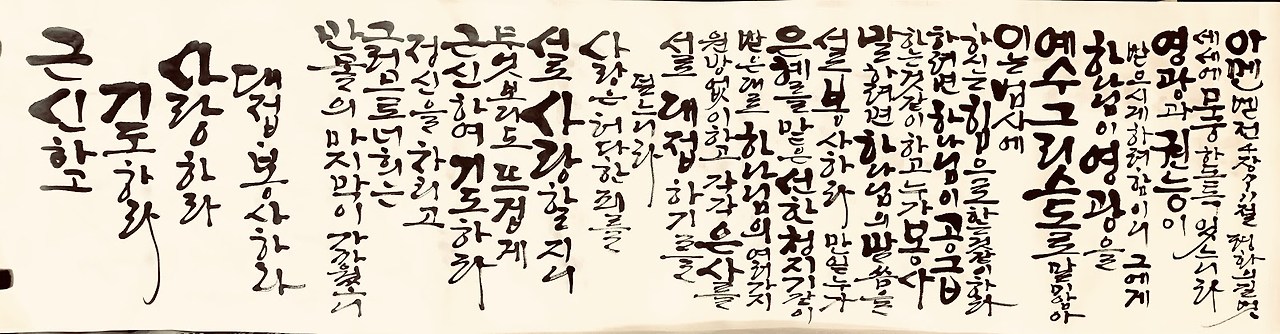 근신하고
기도하라
사랑하라
대접 봉사하라
만물의 마지막이 가까왔으니
그러므로 너희는
정신을 차리고
근신하여 기도하라
무엇보다도 뜨겁게
서로 사랑할지니
사랑은 허다한 죄를
덮느니라
서로 대접하기를
원망 없이 하고 각각 은사를
받은대로 하나님의 여러가지
은혜를 맡은 선한 청지기같이
서로 봉사하라 만일 누가
말하려면 하나님의 말씀을
하는것같이 하고 누가 봉사
하려면 하나님이 공급
하시는 힘으로 하는것같이 하라
이는 범사에
예수 그리스도로 말미암아
하나님이 영광을
받으시게 하려 함이니 그에게
영광과 권능이
세세에 무궁하도록 있느니라
아멘 벧전 4장